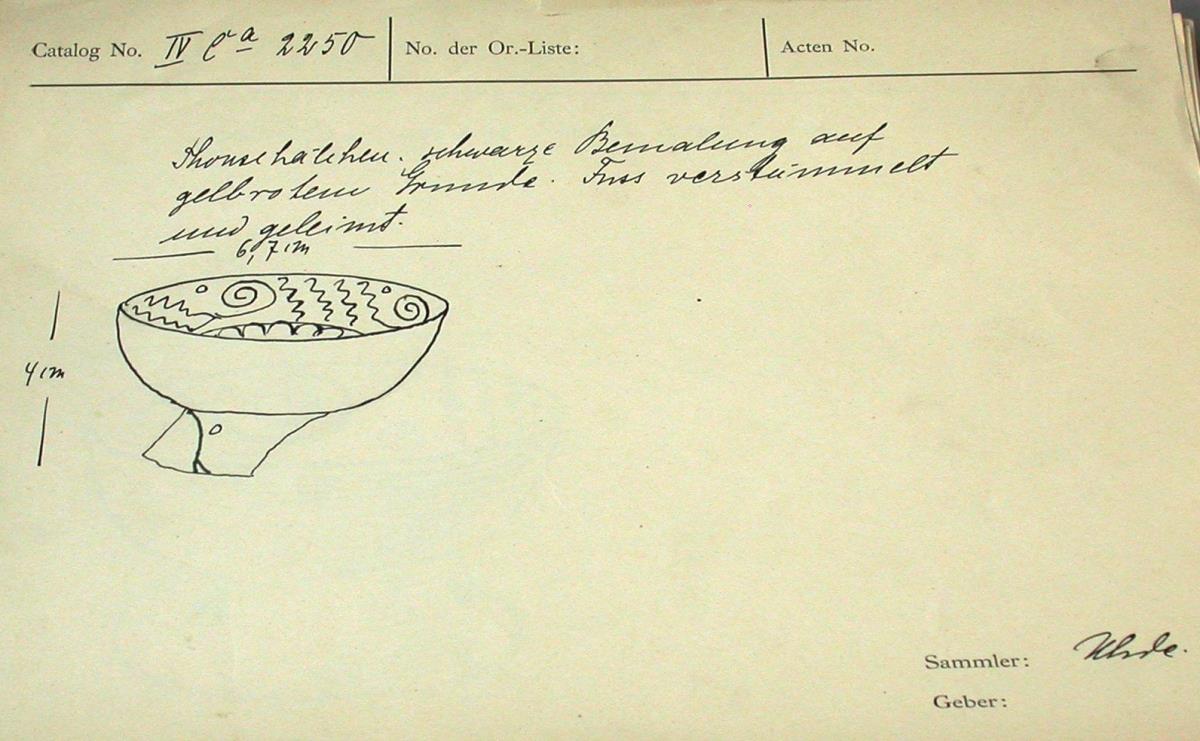 Catalog No. IV Ca 2250
No. der Or.-Liste:
Acten No.
Thonschälchen. schwarze Bemalung auf
gelbrotem Grunde. Fuss verstümmelt
und geleimt.
6,7 cm
4 cm
Sammler: Uhde.
Geber: